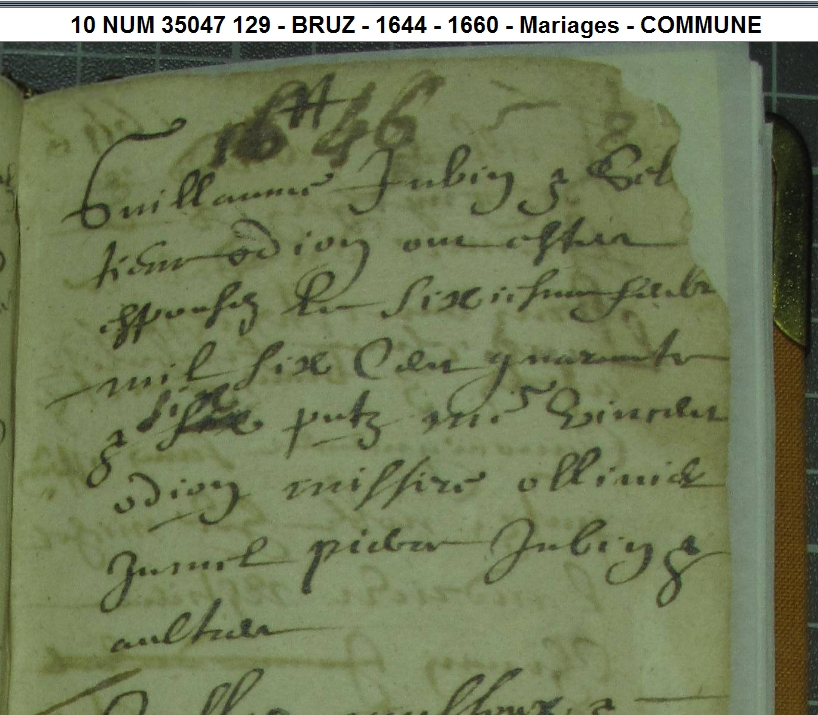 10 NUM 35047 129 - BRUZ - 1644 - 1660 - Mariages - COMMUNE
1646
Guillaume Jubin & Gel
odion ont estez
espousez le sixiesme
mil six Cen quarante
& six putz
odion missire ollivier
Jumel pierre Jubin &
aultres